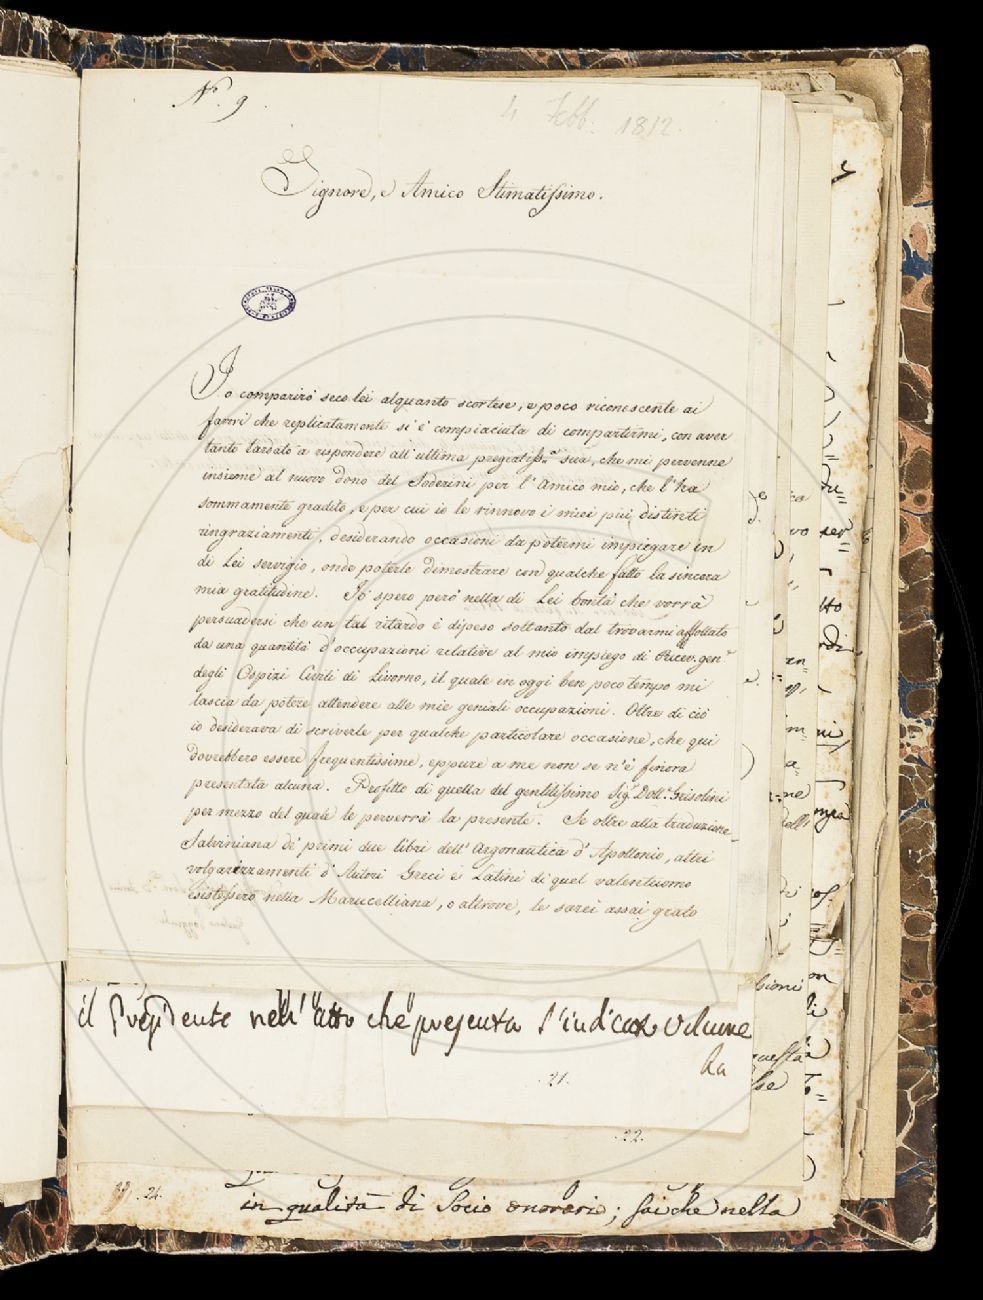 N.° 9
4 Febb. 1812.
Signore, e Amico Stimatissimo.
Io comparirò seco lei alquanto scortese, e poco riconescente ai
favori che replicatamente si è compiaciuta di compartirmi, con aver
tanto tardato a rispondere all'ultima pregiatiss.ª sua, che mi pervenne
insieme al nuovo dono del Soderini per l'Amico mio, che l'ha
sommamente gradito, e per cui io le rinnovo i miei più distinti
ringraziamenti, desiderando occasioni da potermi impiegare in
di Lei servigio, onde poterle dimostrare con qualche fatto la sincera
mia gratitudine. Io spero però nella di Lei bontà che vorrà
persuadersi che un tal ritardo è dipeso soltanto dal trovarmi affollato
da una quantità d'occupazioni relative al mio impiego di Ricev. gen.e
degli Ospizi Civili di Livorno, il quale in oggi ben poco tempo mi
lascia da potere attendere alle mie geniali occupazioni. Oltre di ciò
io desiderava di scriverle per qualche particolare occasione, che qui
dovrebbero essere frequentissime, eppure a me non se n'è finora
presentata alcuna. Profitto di quella del gentilissimo Sig.r Dott.r Grisolini
per mezzo del quale le perverrà la presente. Se oltre alla traduzione
Salviniana de' primi due libri dell'Argonautica d'Apollonio, altri
volgarizzamenti d'Autori Greci e Latini di quel valentuomo
esistessero nella Marucelliana, o altrove, le sarei assai grato
il Presidente nell'atto che presenta l'indicato Volume
ha
.21.
.22.
.24.
in qualità di Socio onorario; sai che nella